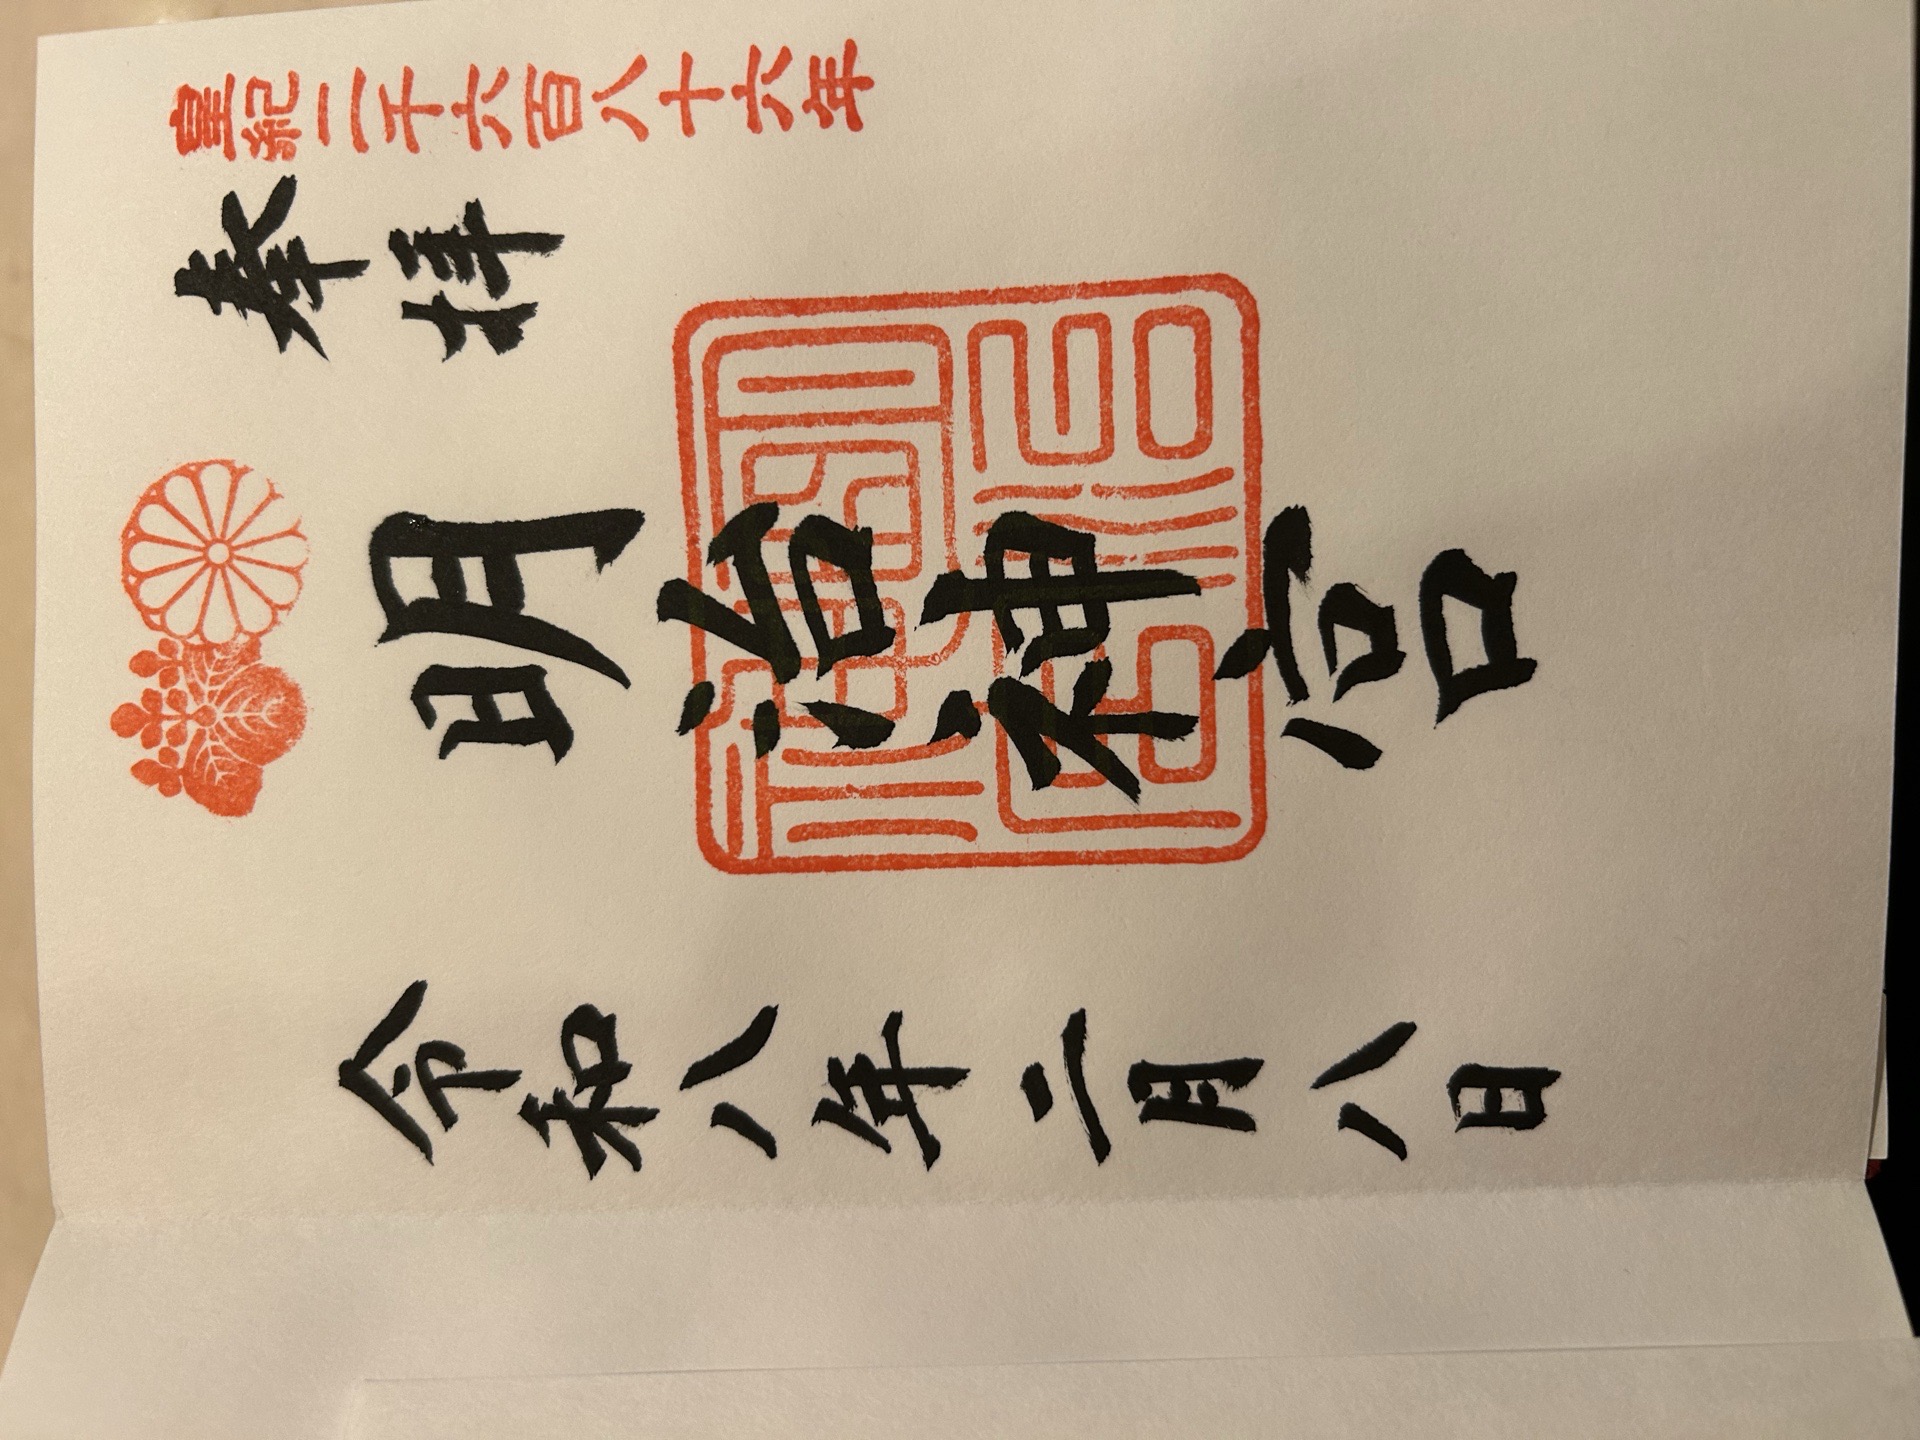 皇紀二千六百八十六年
奉拝
明治神宮
明治神宮
令和八年二月八日